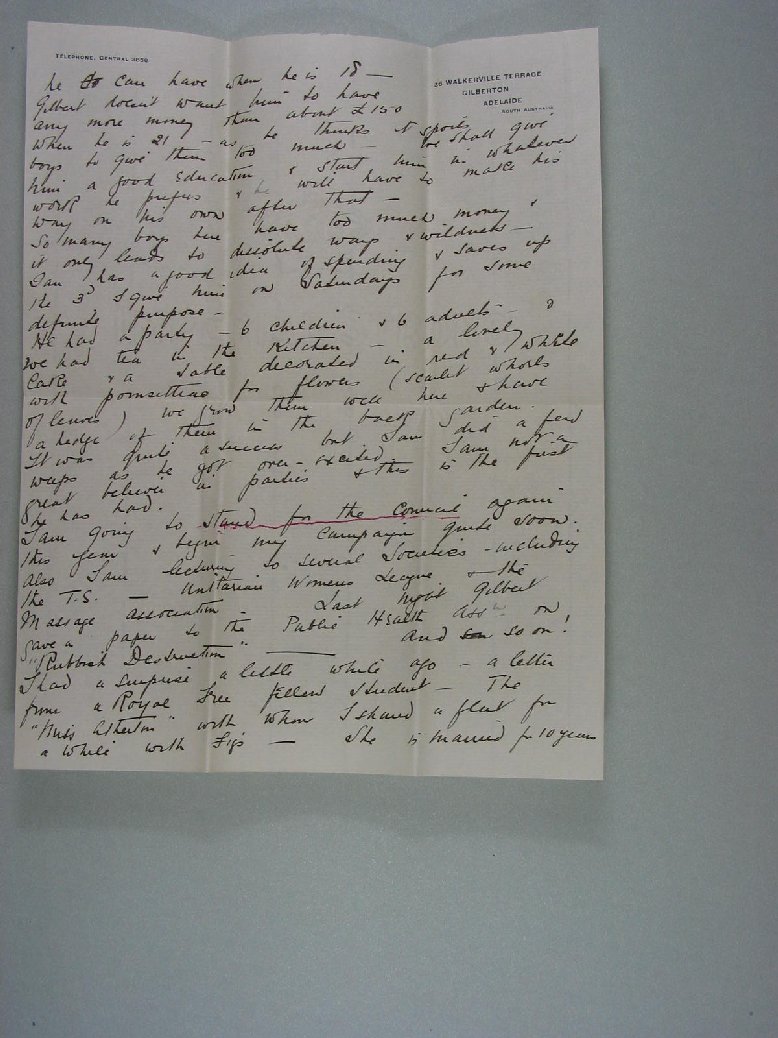 TELEPHONE, CENTRAL
26 WALKERVILLE TERRACE
GILBERTON
ADELAIDE
SOUTH AUSTRALIA
he can have when he is 18 —
Gilbert doesn't want him to have
any more money than about £150
when he is 21 — as he thinks it spoils
boys to give them too much — We shall give
him a good Education & start him in whatever
work he prefers & he will have to make his
way on his own after that —
So many boys here have too much money &
it only leads to dissolute ways & wildness —
Ian has a good idea of spending & saves up
the 3d I give him on Saturdays for some
definite purpose —
He had a party — 6 children & 6 adults — &
we had tea in the Kitchen — a lovely
Cake & a table decorated in red & white
with poinsettias for flowers (scarlet whorls
of leaves) we grow them well here & have
a hedge of them in the back garden.
It was quite a success but Ian did a few
weeps as he got over-excited. I am not a
great believer in parties & this is the first
he has had.
I am going to stand for the Council again
this year & begin my campaign quite soon.
Also I am lecturing to several Societies — including
the T.S. — Unitarian Womens League & the
Massage association — Last night Gilbert
gave a paper to the Public Health Assn on
"Rubbish Destruction" — And so on!
I had a surprise a little while ago — a letter
from a Royal Free fellow student — The
"Miss Atherton" with whom I shared a flat for
a while with Figs — She is married for 10 years